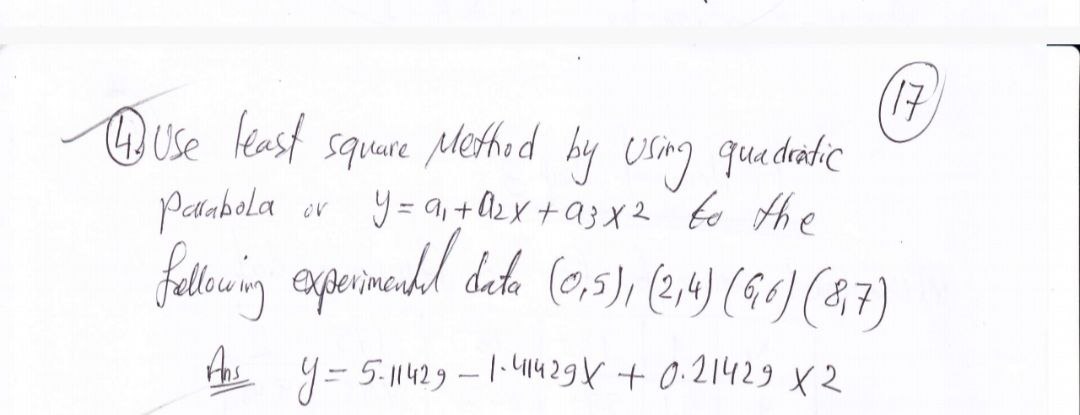 17
④ Use least square Method by Using quadratic
parabola or y = a₁ + a₂x + a₃x2 to the
following experimental data (0,5), (2,4) (6,6) (8,7)
Ans y = 5.11429 – 1.41429x + 0.21429 x2